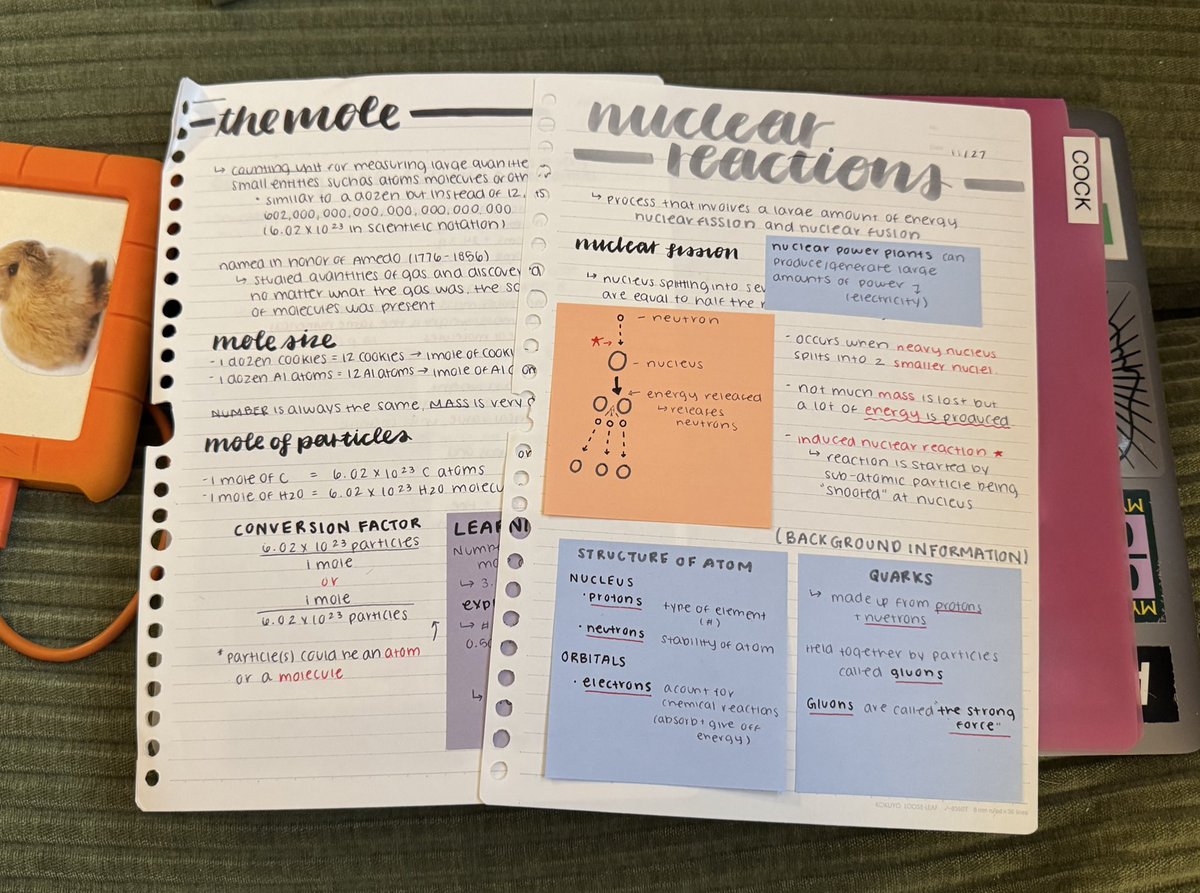 the mole
↳ counting unit for measuring large quantitie
small entities such as atoms molecules or oth
• similar to a dozen but instead of 12,
602,000,000,000,000,000,000,000
(6.02 x 10²³ in scientific notation)
named in honor of Amedo (1776-1856)
↳ studied quantities of gas and discover
no matter what the gas was, the
of molecules was present
mole size
- 1 dozen cookies = 12 cookies → 1 mole of cooki
- 1 dozen Al atoms = 12 Al atoms → 1 mole of Al
NUMBER is always the same, MASS is very
mole of particles
- 1 mole of C = 6.02 x 10²³ C atoms
- 1 mole of H2O = 6.02 x 10²³ H2O molecu
CONVERSION FACTOR
6.02 x 10²³ particles
1 mole
or
1 mole
6.02 x 10²³ particles
↑
* particle(s) could be an atom
or a molecule
LEARNI
Num
mo
↳ 3.
exp
↳ #
0.5
↳
nuclear
reactions
11/27
↳ process that involves a large amount of energy
nuclear fission and nuclear fusion
nuclear fission
↳ nucleus splitting into
are equal to half the
nuclear power plants can
produce/generate large
amounts of power
(electricity)
o - neutron
* →
- nucleus
← energy released
↳ releases
neutrons
- occurs when heavy nucleus
splits into 2 smaller nuclei.
- not much mass is lost but
a lot of energy is produced
- induced nuclear reaction *
↳ reaction is started by
sub-atomic particle being
"shooted" at nucleus
(BACKGROUND INFORMATION)
STRUCTURE OF ATOM
NUCLEUS
• protons type of element
(#)
• neutrons stability of atom
ORBITALS
• electrons acount for
chemical reactions
(absorb + give off
energy)
QUARKS
↳ made up from protons
+ nuetrons
Held together by particles
called gluons
Gluons are called "the strong
force"
KOKUYO LOOSE-LEAF
COCK
MY